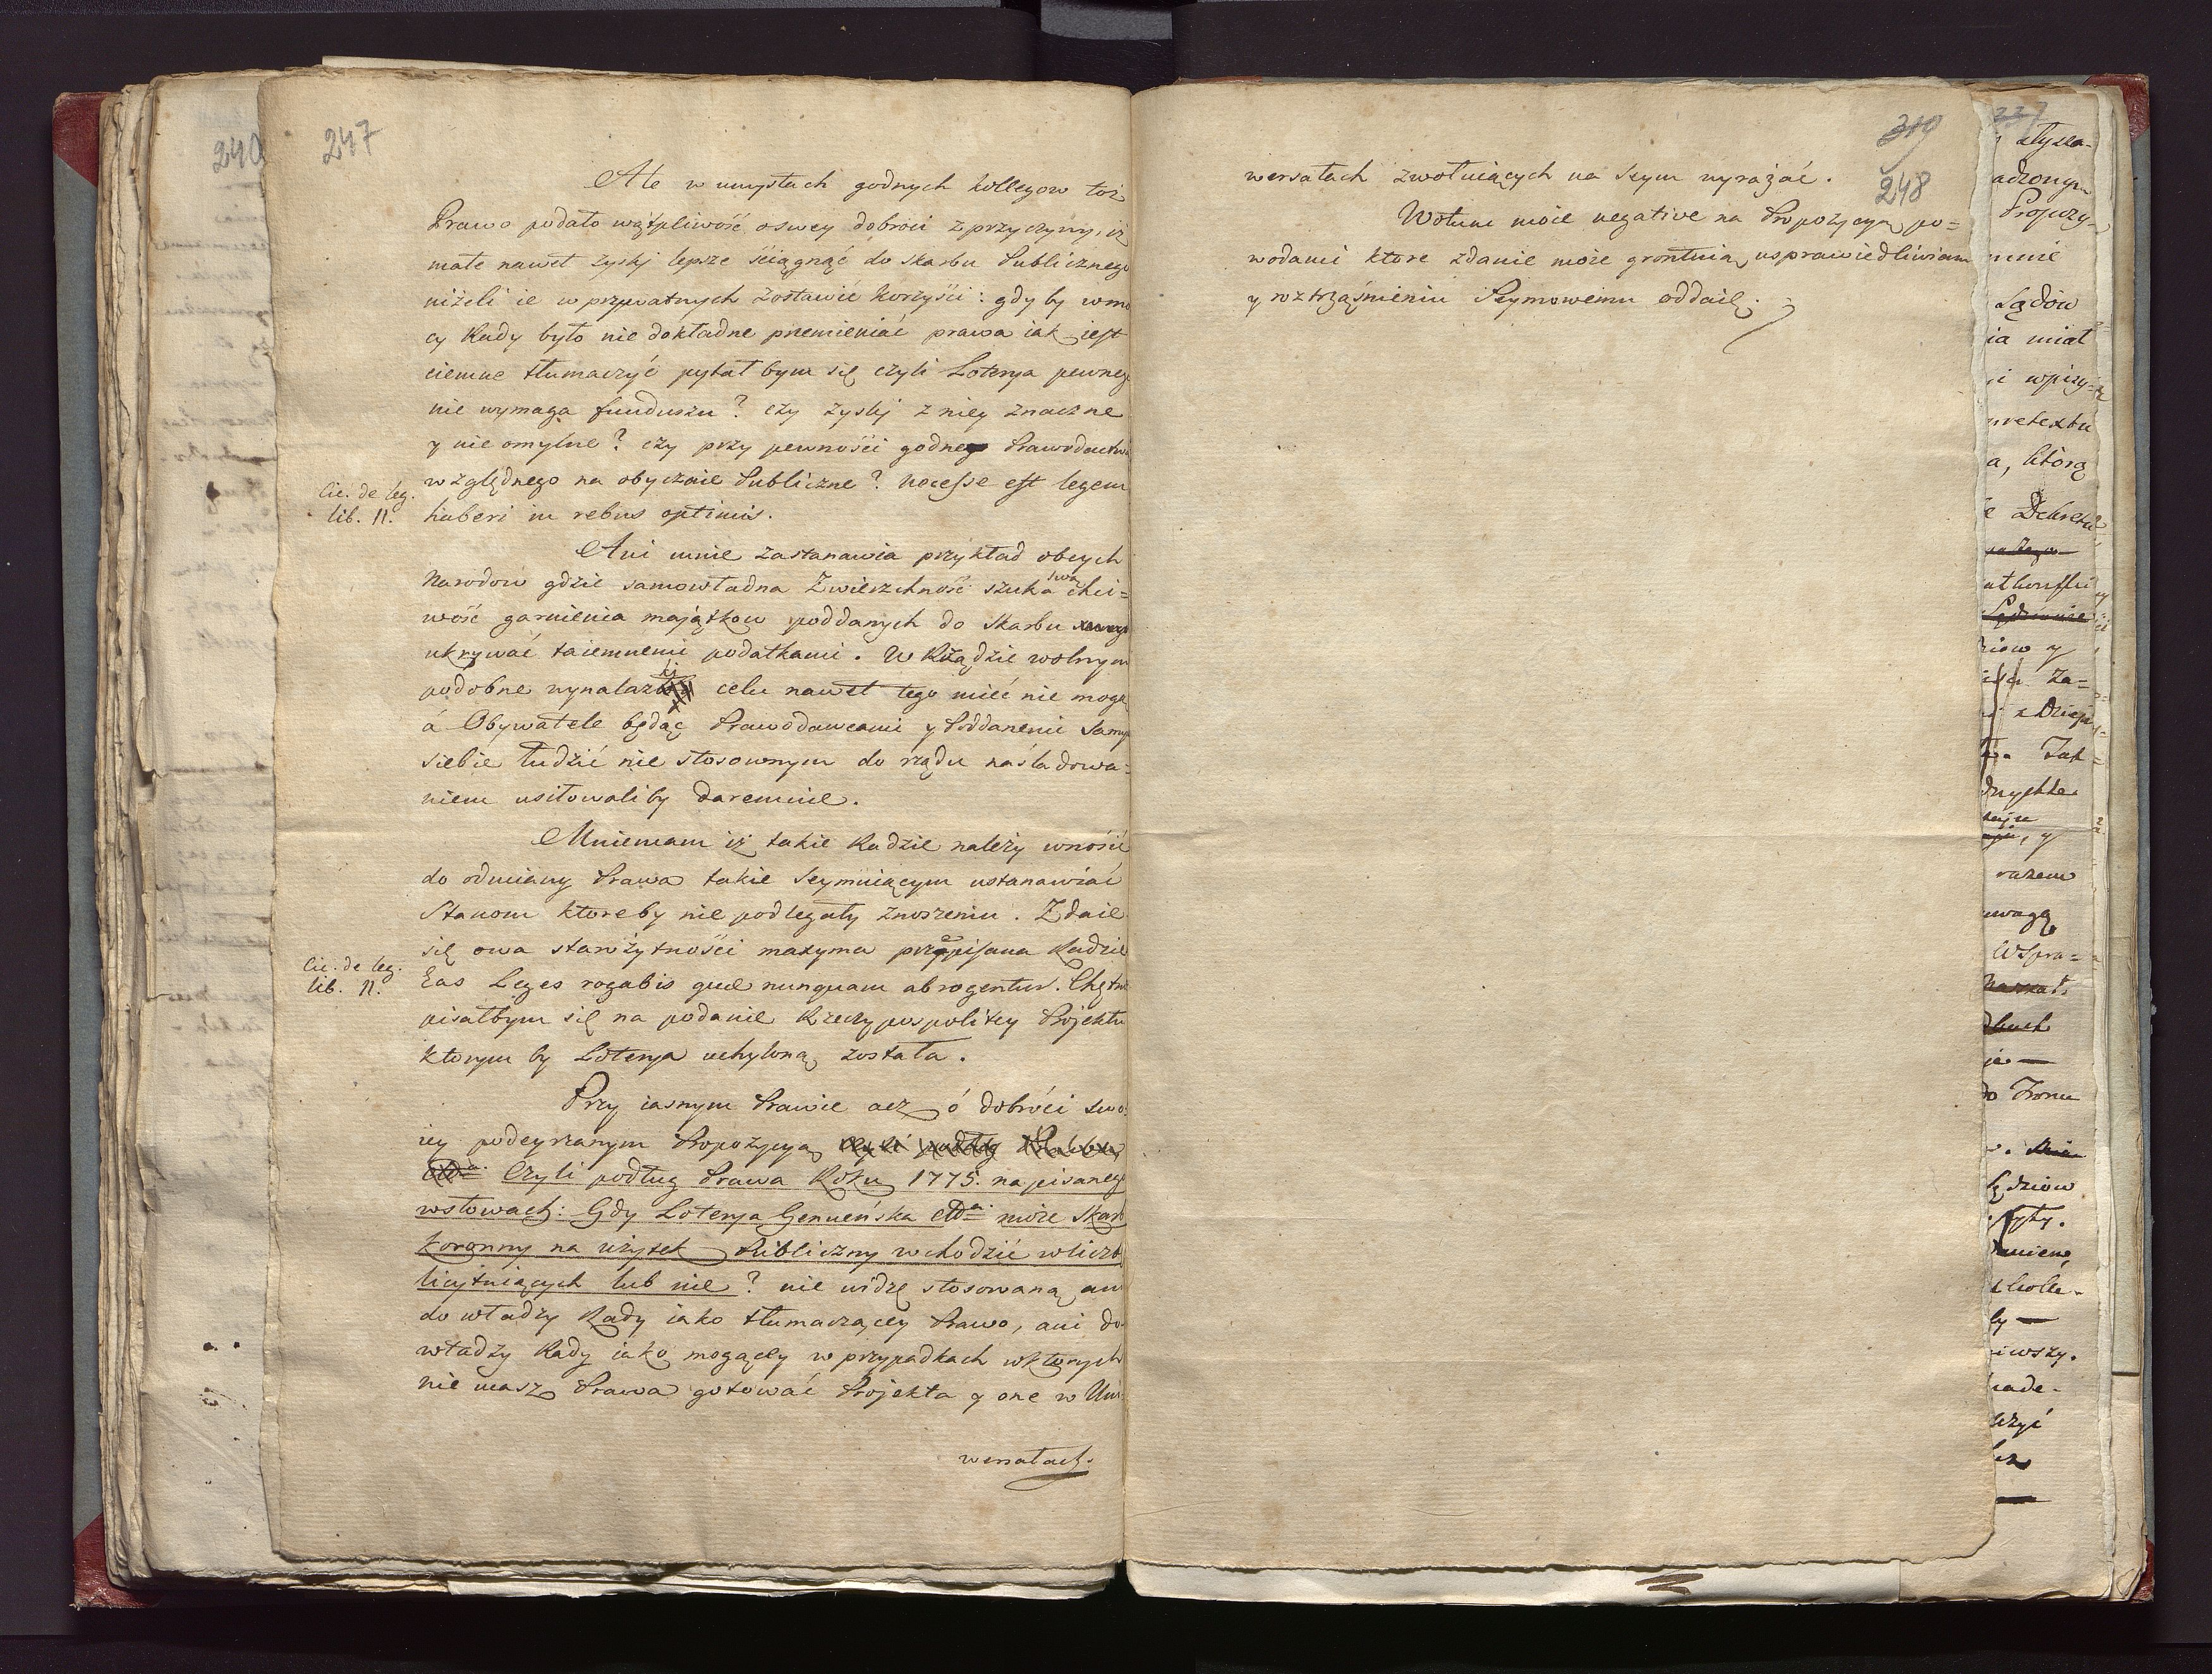 247
Ale w umysłach godnych kollegow toż
Prawo podało wątpliwość o swey dobroci z przyczyny, iż
małe nawet zyski lepsze ściągnąć do skarbu Publicznego
niżeli ie w prywatnych zostawić korzyści: gdy by w mo
cy Rady było nie dokładne przemieniać prawa iak iest
ciemne tłumaczyć pytał bym się czyli Loterya pewnego
nie wymaga funduszu? czy zyski z niey znaczne
y nie omylne? czy przy pewności godne Prawodactwa
względnego na obyczaie Publiczne? necesse est legem
Cic. de leg.
lib. II.
haberi in rebus optimis.
Ani mnie zastanawia przykład obcych
Narodow gdzie samowładna Zwierzchność szuka swą chci=
wość garnienia majątkow poddanych do skarbu
ukrywać taiemnemi podatkami. W Rządzie wolnym
podobne wynalazki celu nawet tego mieć nie mogą
á Obywatele będąc Prawodawcami y Poddanemi samy
siebie łudzić nie stosownym do rządu naśladowa=
niem usiłowaliby daremnie.
Mniemam iż takie Radzie należy wnosić
do odmiany Prawa takie Seymuiącym ustanawiać
Stanom ktoreby nie podlegały znoszeniu. Zdaie
się owa starożytności maxyma przepisana Radzie
Cic. de leg.
lib. II.
Eas Leges rogabis quæ nunquam abrogentur. Chętnie
pisałbym się na podanie Rzeczypospolitey Projektu
ktorym by Loterya uchyloną została.
Przy iasnym Prawie acz ó dobroci swo=
iey podeyrzanym Propozycyą czyli podług Prawa
etca. Czyli podług Prawa Roku 1775. napisanego
w słowach: Gdy Loterya Genueńska etca. może Skarb
Koronny na użytek Publiczny wchodzić w liczbę
licytuiących lub nie? nie widzę stosowaną ani
do władzy Rady iako tłumaczącey Prawo, ani do
władzy Rady iako mogącey w przypadkach w ktorych
nie masz Prawa gotować Projekta y one w Uni
wersałach.
319
248
wersałach zwołuiących na Seym wyrażać.
Wotum moie negative na Propozycyą po=
wodami ktore zdanie moie gruntuią, usprawiedliwiam
y roztrząśnieniu Seymowemu oddaię.
240